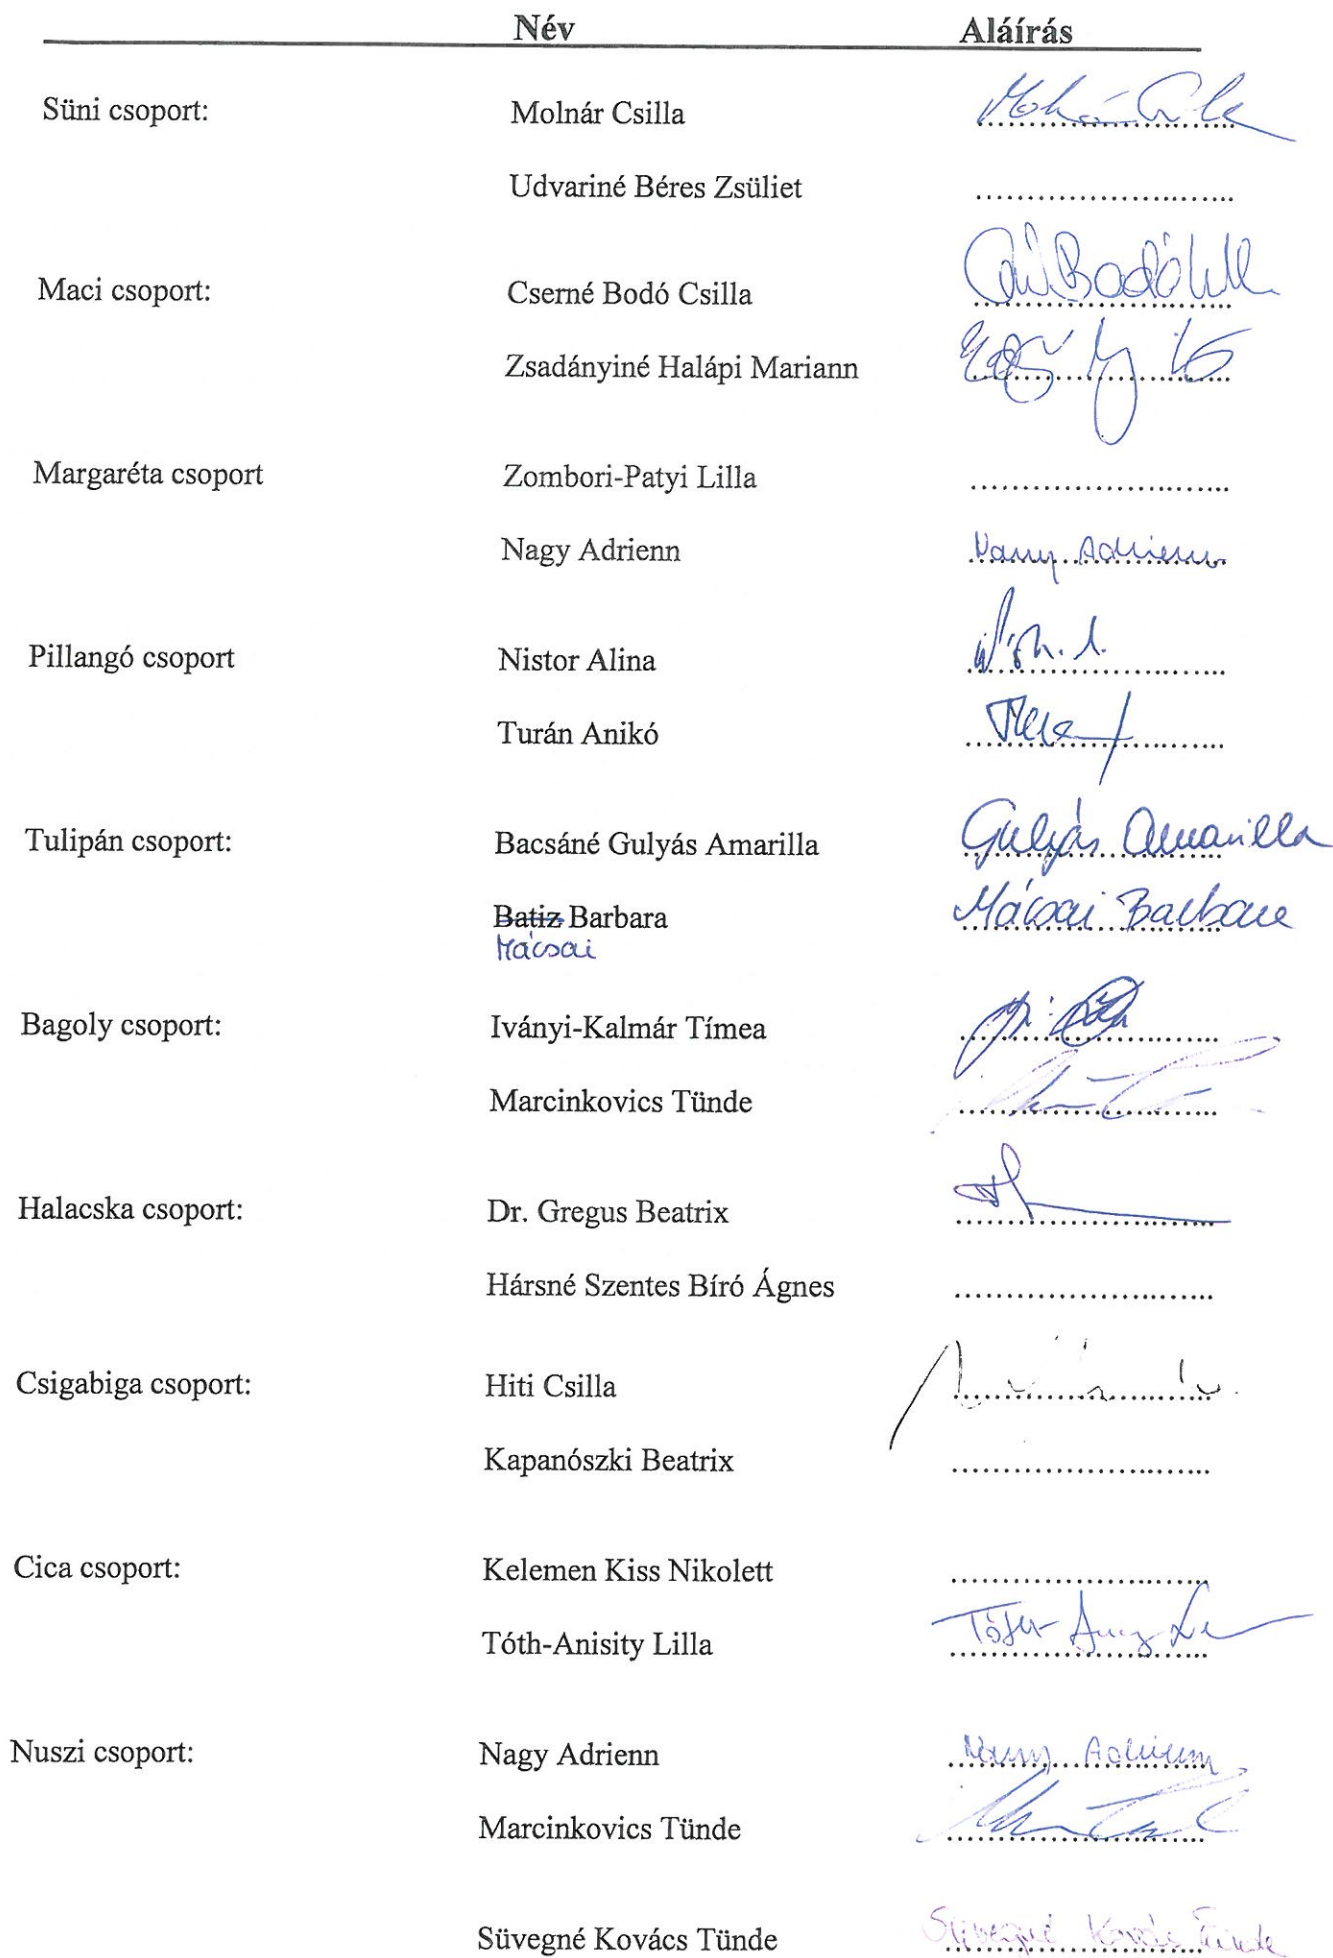 Név Aláírás
Süni csoport: Molnár Csilla
Udvariné Béres Zsüliet ........................
Maci csoport: Cserné Bodó Csilla Bodó
Zsadányiné Halápi Mariann
Margaréta csoport Zombori-Patyi Lilla ........................
Nagy Adrienn Nagy Adrienn
Pillangó csoport Nistor Alina
Turán Anikó
Tulipán csoport: Bacsáné Gulyás Amarilla Gulyás Amarilla
Batiz Barbara Mácsai Barbara
Mácsai
Bagoly csoport: Iványi-Kalmár Tímea
Marcinkovics Tünde
Halacska csoport: Dr. Gregus Beatrix
Hársné Szentes Bíró Ágnes ........................
Csigabiga csoport: Hiti Csilla
Kapanószki Beatrix ........................
Cica csoport: Kelemen Kiss Nikolett ........................
Tóth-Anisity Lilla Tóth-
Nuszi csoport: Nagy Adrienn Nagy Adrienn
Marcinkovics Tünde
Süvegné Kovács Tünde Süvegné Kovács Tünde